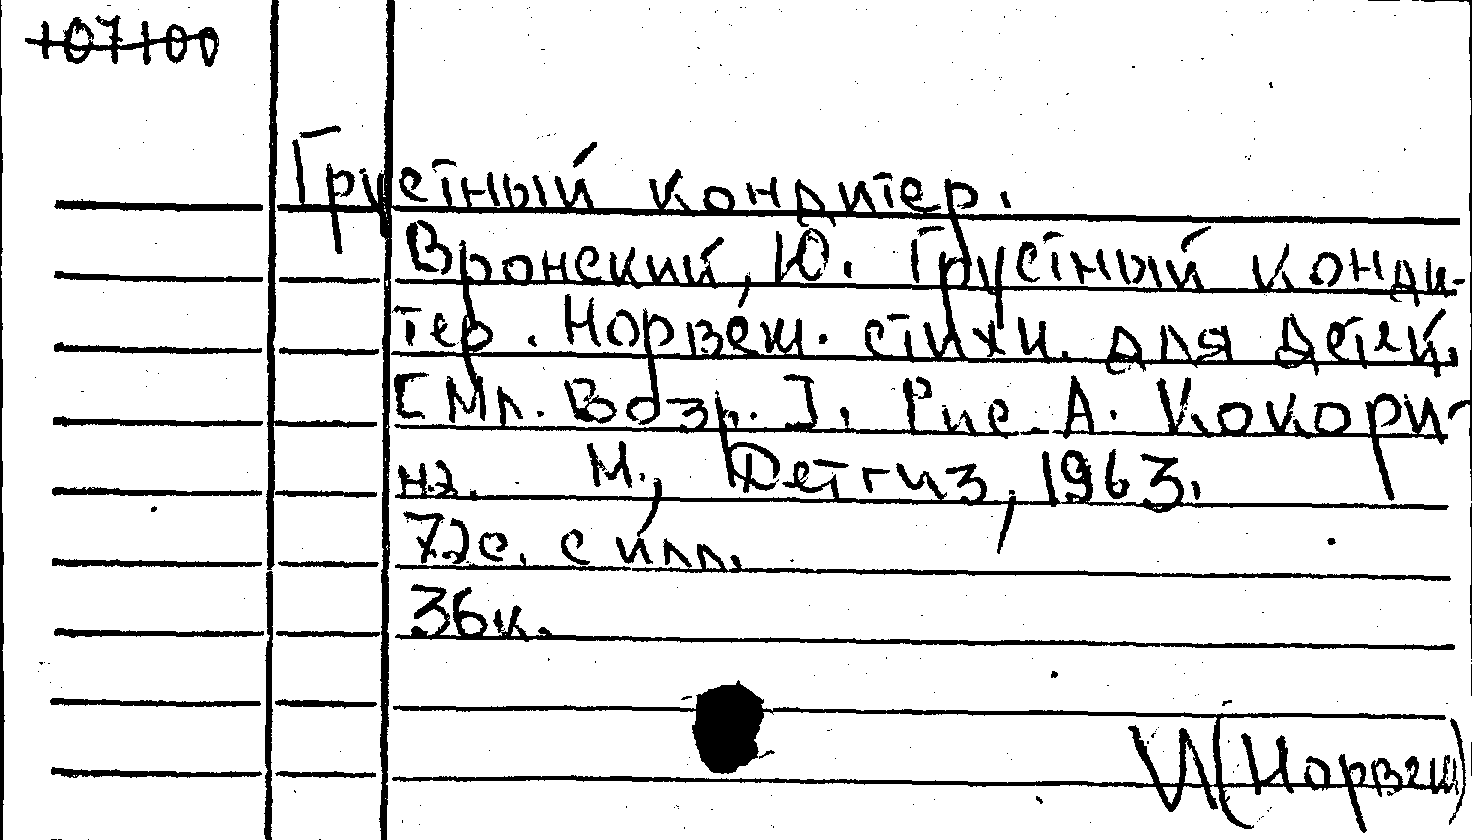 107100
Грустный кондитер.
Вронский, Ю. Грустный конди-
тер. Норвеж. стихи для детей.
[Мл. возр.]. Рис. А. Кокори-
на. М., Детгиз, 1963.
72с. с илл.
36к.
И(Норвеж)